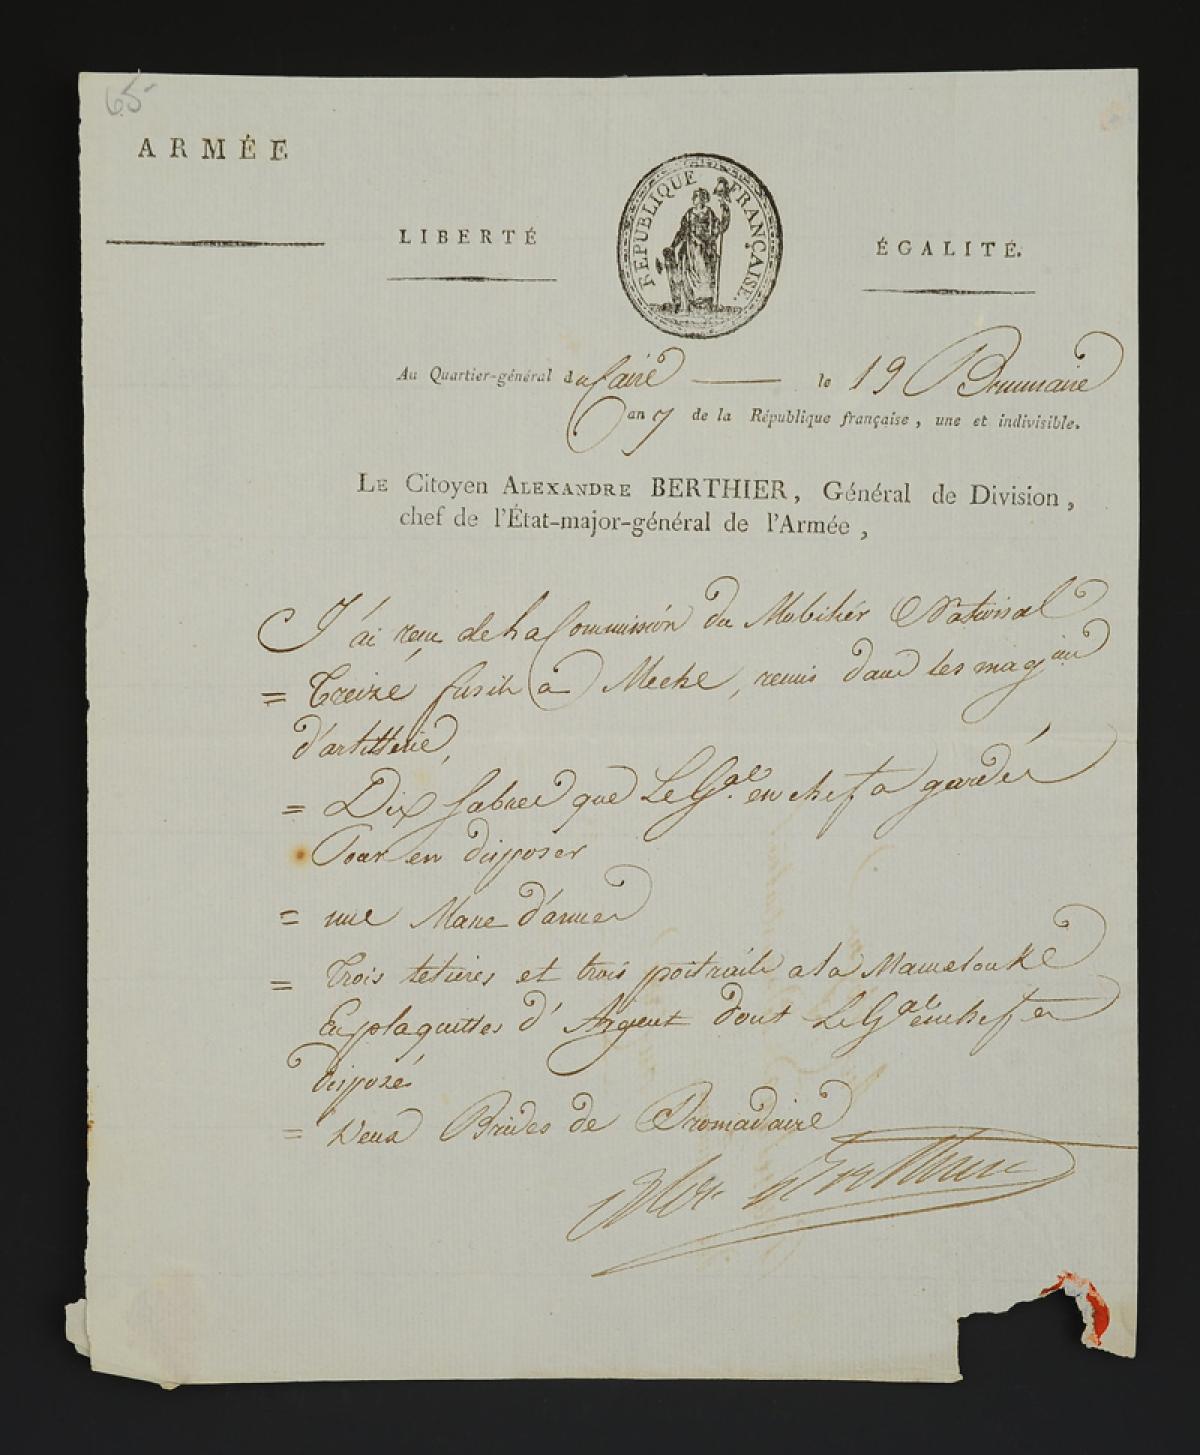 65-
ARMÉE
LIBERTÉ
RÉPUBLIQUE FRANÇAISE.
ÉGALITÉ.
Au Quartier-général du Caire — le 19 Brumaire
an 7 de la République française, une et indivisible.
LE Citoyen ALEXANDRE BERTHIER, Général de Division,
chef de l'État-major-général de l'Armée,
J'ai recu de la Commission du Mobiliér National
= Treize fusils a Meche, remis dans les mag.ins
d'artillerie,
= Dix Sabres que Le G.al en chef a gardés
Pour en disposer
= une Masse d'armes
= Trois tetieres et trois poitrails a la Mamelouke
En plaquettes d'Argent dont Le G.al en chef a
disposé
= Deux Brides de Dromadaire
Alex Berthier